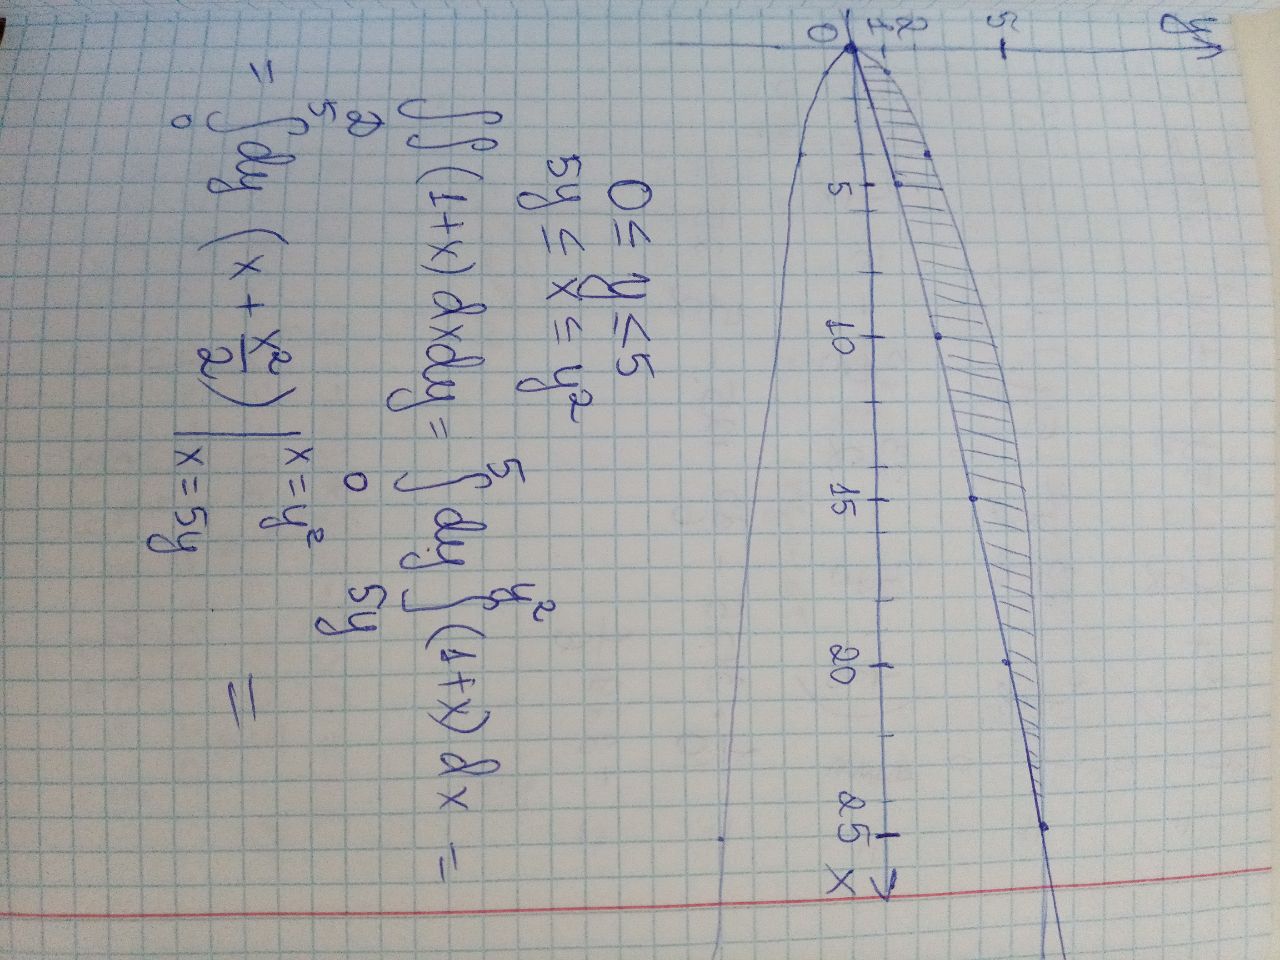 y
5
2
1
0 5 10 15 20 25 x
0 ≤ y ≤ 5
5y ≤ x ≤ y²
∬_D (1+x) dxdy = ∫_0^5 dy ∫_{5y}^{y²} (1+x) dx =
= ∫_0^5 dy (x + x²/2) |_{x=5y}^{x=y²} =